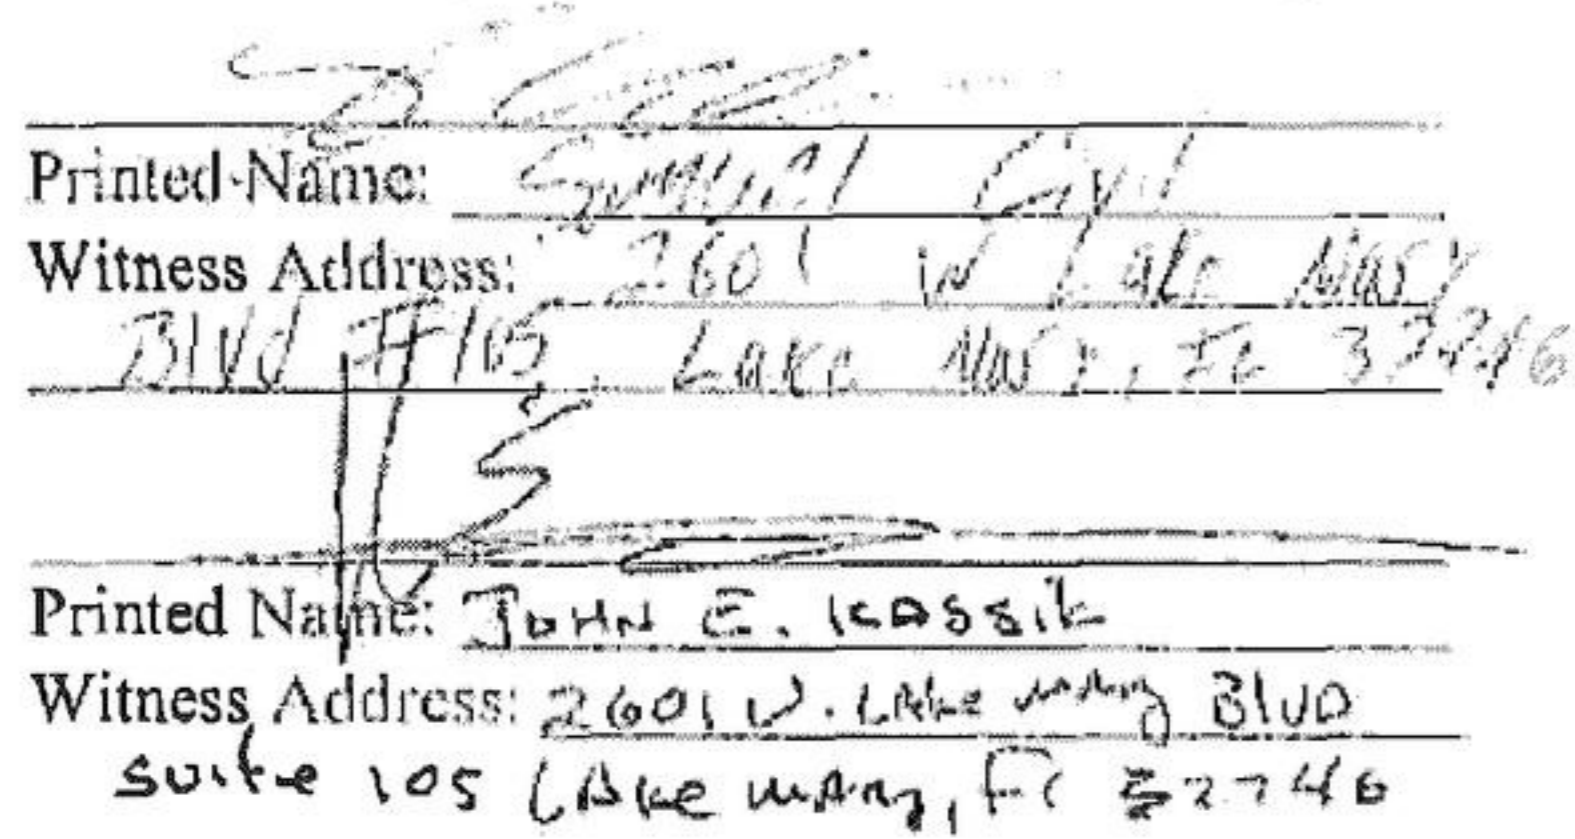 Printed Name: Samuel
Witness Address: 2601 W Lake Mary
Blvd #105, Lake Mary, FL 32746
Printed Name: JOHN E. KASSIK
Witness Address: 2601 W. LAKE MARY BLVD
SUITE 105 LAKE MARY, FL 32746